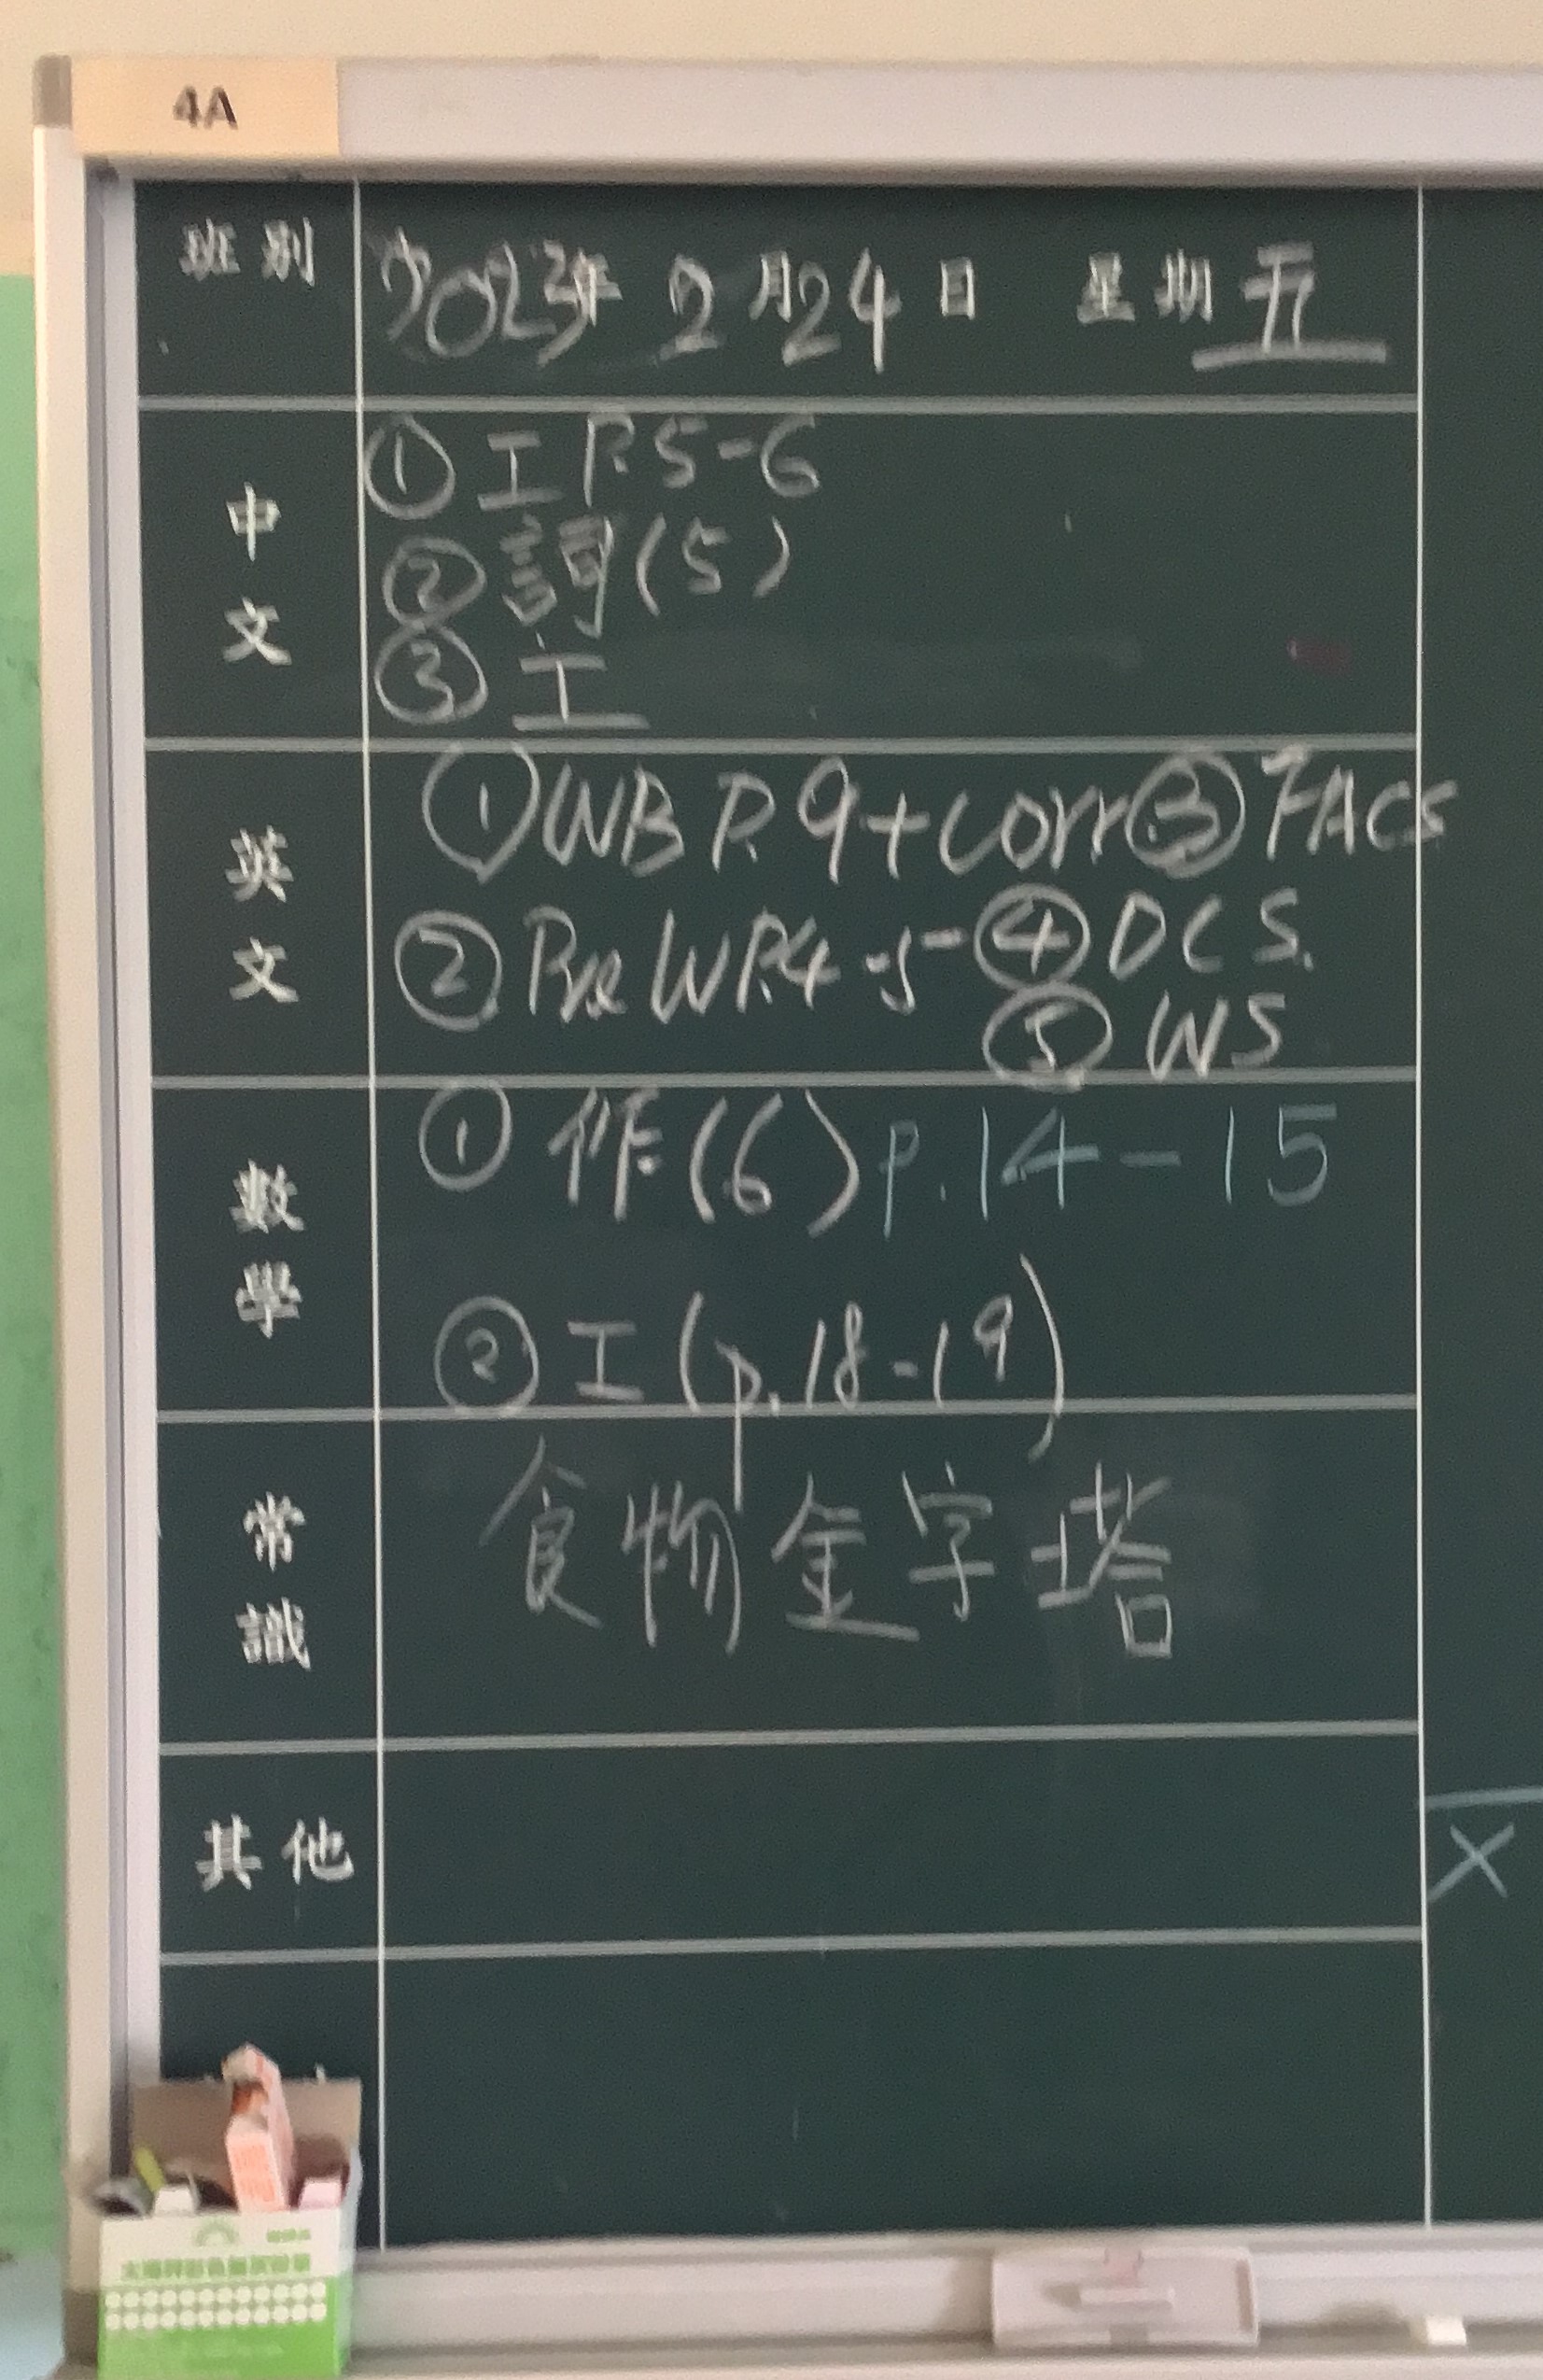 4A
班別 2023年 2月24日 星期五
中文
① 工 P.5-6
② 詞(5)
③ 工
英文
① WB P.9+corr ③ FACS
② Pre WP.4-5 ④ DCS.
⑤ WS
數學
① 作(6) p.14-15
② 工(p.18-19)
常識
食物金字塔
其他
X